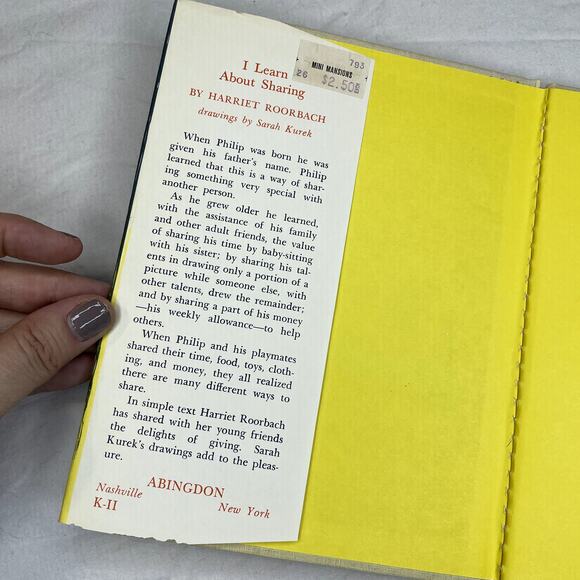 I Learn
About Sharing
793
MINI MANSIONS
26 $2.50
BY HARRIET ROORBACH
drawings by Sarah Kurek
When Philip was born he was
given his father's name. Philip
learned that this is a way of shar-
ing something very special with
another person.
As he grew older he learned,
with the assistance of his family
and other adult friends, the value
of sharing his time by baby-sitting
with his sister; by sharing his tal-
ents in drawing only a portion of a
picture while someone else, with
other talents, drew the remainder;
and by sharing a part of his money
—his weekly allowance—to help
others.
When Philip and his playmates
shared their time, food, toys, cloth-
ing, and money, they all realized
there are many different ways to
share.
In simple text Harriet Roorbach
has shared with her young friends
the delights of giving. Sarah
Kurek's drawings add to the pleas-
ure.
ABINGDON
Nashville New York
K-II